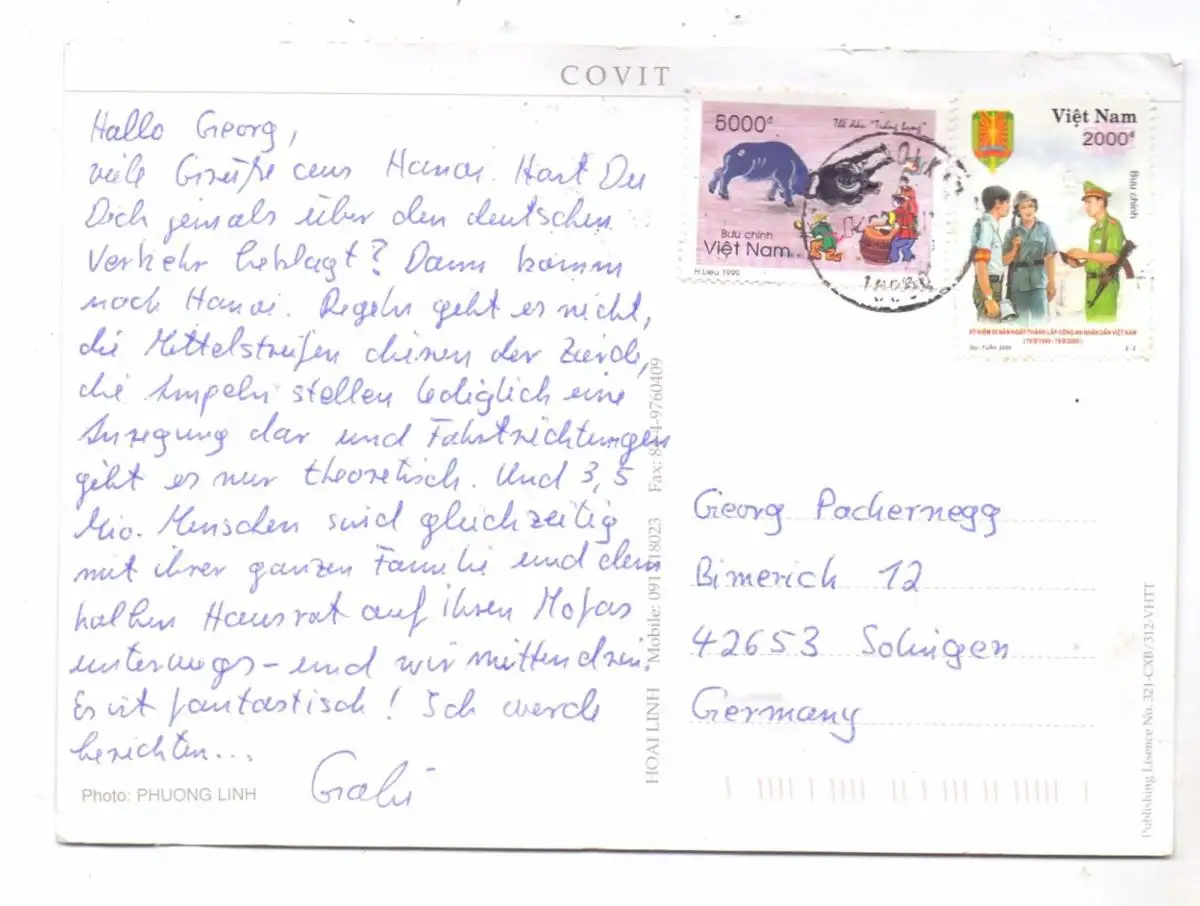 COVIT
Hallo Georg,
viele Grüße aus Hanoi. Hast Du
Dich jemals über den deutschen
Verkehr beklagt? Dann komm
nach Hanoi. Regeln gibt es nicht,
die Mittelstreifen dienen der Zierde,
die Ampeln stellen lediglich eine
Anregung dar und Fahrtrichtungen
gibt es nur theoretisch. Und 3,5
Mio. Menschen sind gleichzeitig
mit ihrer ganzen Familie und dem
halben Hausrat auf ihren Mofas
unterwegs - und wir mittendrin.
Es ist fantastisch! Ich werde
berichten...
Gabi
Photo: PHUONG LINH
HOAI LINH *Mobile: 091 18023 Fax: 84-4-9760409
5000đ
Bưu chính
Việt Nam
H.Liệu 1999
Việt Nam
2000đ
Bưu chính
KỶ NIỆM 55 NĂM NGÀY THÀNH LẬP CÔNG AN NHÂN DÂN VIỆT NAM
2-2
Georg Pachernegg
Bimerich 12
42653 Solingen
Germany
Publishing Lisence No. 321-CXB/312-VHTT